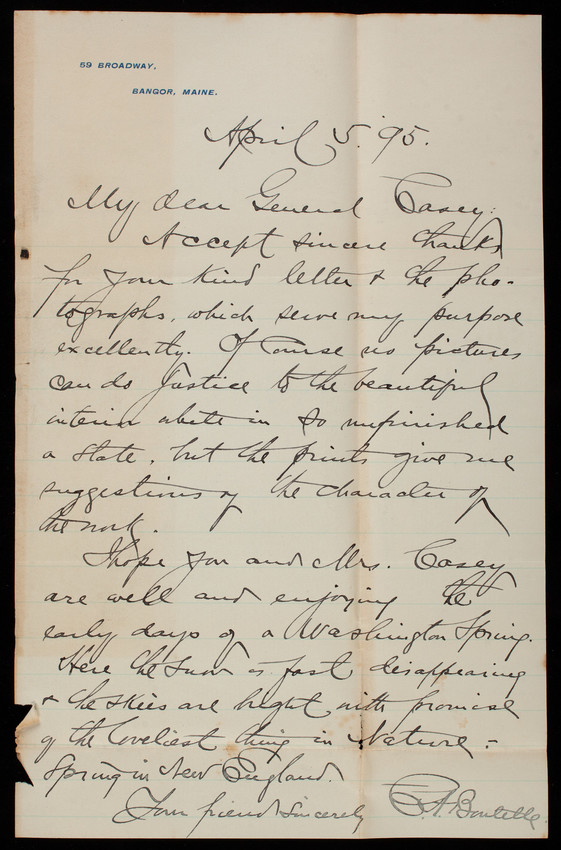 69 BROADWAY,
BANGOR, MAINE.
April 5. '95.
My dear General Casey:
Accept sincere thanks
for your kind letter & the pho-
tographs, which serve my purpose
excellently. Of course no pictures
can do justice to the beautiful
interior while in so unfinished
a state, but the prints give me
suggestions of the character of
the work.
I hope you and Mrs. Casey
are well and enjoying the
early days of a Washington Spring.
Here the snow is fast disappearing
& the skies are bright with promise
of the loveliest thing in Nature -
Spring in New England.
Your friend Sincerely
C. A. Boutelle.